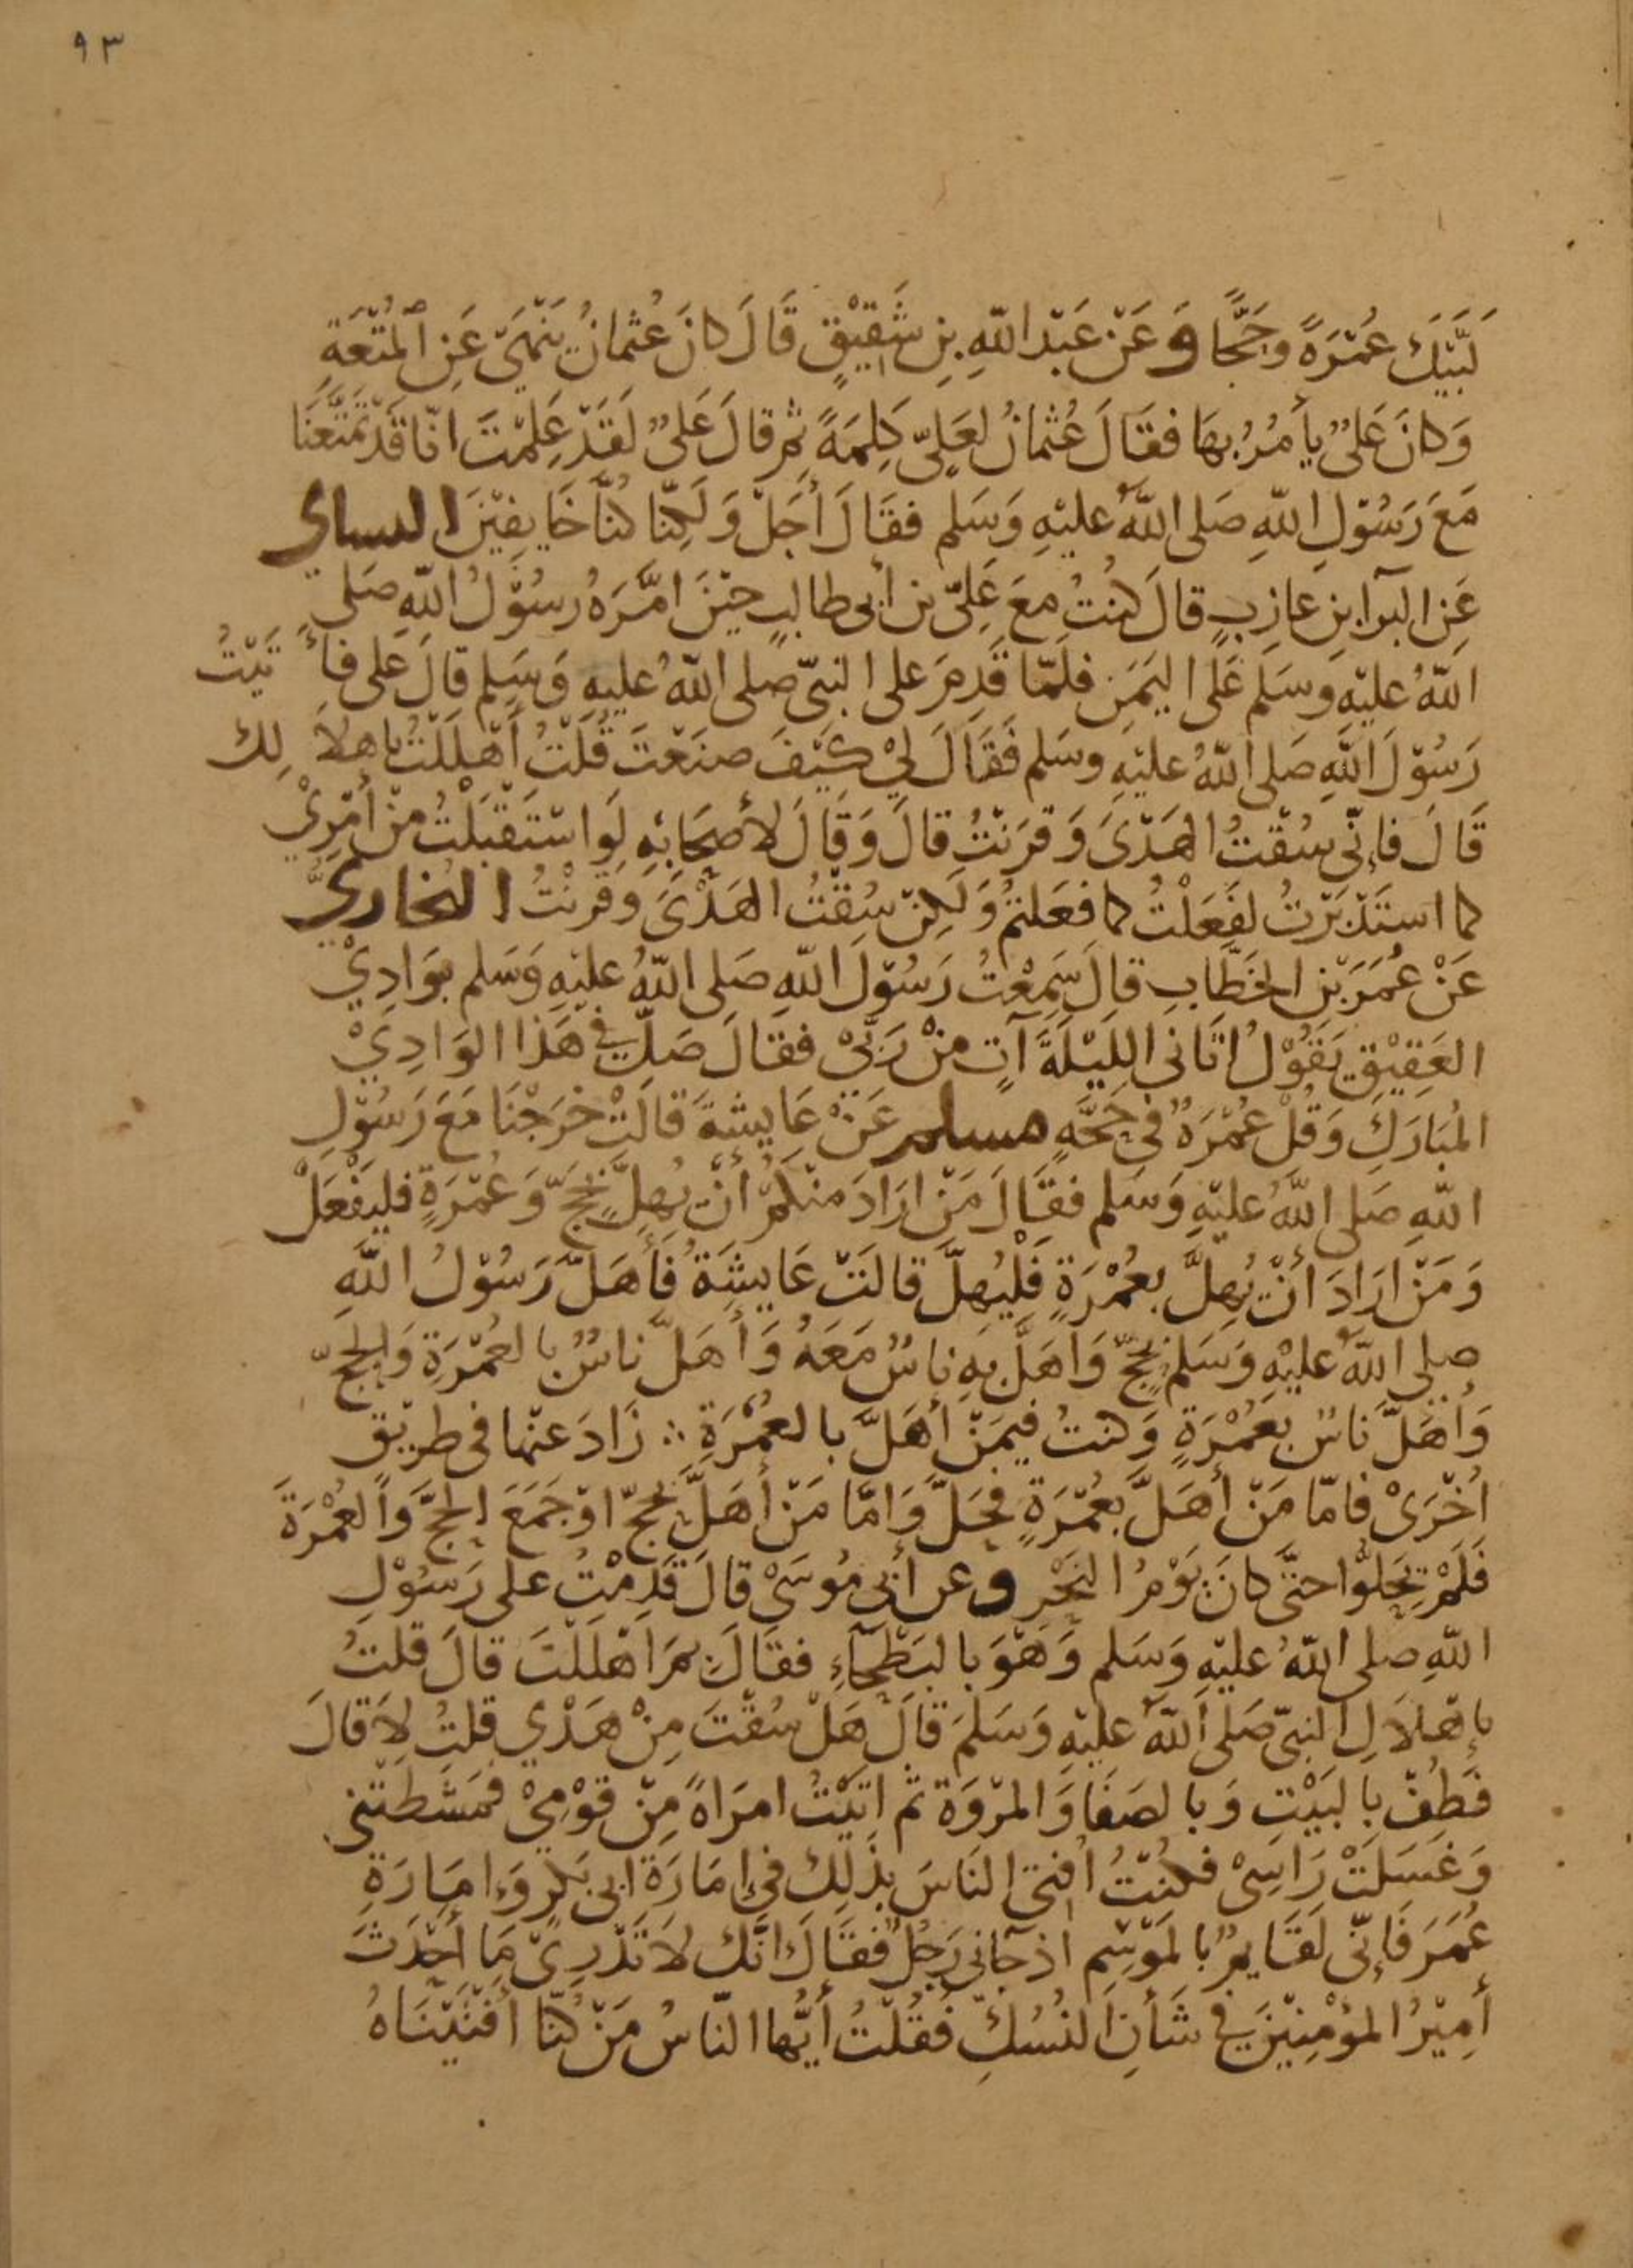 ٩٣
لَبَّيْكَ عُمْرَةً وحَجًّا وَعَنْ عَبْد اللّهِ بنِ شَقِيْقٍ قَالَ كانَ عُثمانُ يَنْهَىَ عَنِ المُتْعَةِ
وَكانَ عَلىٌ يأمُرُ بهَا فقَالَ عُثمانُ لعَلِىّ كَلِمَةً ثم قالَ عَلىٌ لَقَدْ عَلِمْتَ انّا قَدْ تَمَتَّعْنَا
مَعَ رَسُوْلِ اللّهِ صَلى اللّهُ عليْهِ وَسَلم فقَالَ أَجَلْ وَلَكِنّا كُنّا خَايِفِيْنَ النساي
عَنِ البَرا بنِ عازِبٍ قالَ كنتُ معَ عَلِىّ بن أبى طالبٍ حيْنَ امَّرَهُ رسُوْلُ اللّهِ صَلى
اللّهُ عليْهِ وَسَلم عَلَى اليَمَنِ فلَمّا قَدِمَ على النبىّ صَلى اللّهُ عليهِ وَسَلم قالَ عَلى فأتَيْتُ
رَسُوْلَ اللّهِ صَلى اللّهُ عليْهِ وسَلم فَقَالَ لِيْ كَيْفَ صنَعْتَ قُلْتُ أَهْلَلْتُ باهلالِكَ
قَالَ فإنّى سُقْتُ الهَدْىَ وَقرَنْتُ قالَ وَقالَ لأصحَابِهِ لَوِ اسْتَقْبَلْتُ منْ أمْرِيْ
كما استَدْبَرْتُ لفَعَلْتُ كما فعَلتمُ وَلَكِنّ سُقْتُ الهَدْىَ وَقَرَنْتُ البُخاريُّ
عَنْ عُمَرَ بْنِ الخَطَّابِ قالَ سَمِعْتُ رَسُوْلَ اللّهِ صَلى اللّهُ عليْهِ وَسَلم بوَادِيْ
العَقِيْقِ يَقُوْلُ اتَانى اللَيْلَةَ آتٍ منْ رَبّىْ فقَالَ صَلّ في هَذا الوَادِيْ
المُبَارَكِ وَقُلْ عُمْرَةٌ فى حَجَّةٍ مسلم عَنْ عَايشةَ قالَتْ خرَجْنَا مَعَ رَسُوْلِ
اللّهِ صَلى اللّهُ عليْهِ وَسَلم فقَالَ مَنْ ارَادَ منكُمْ أنْ يُهِلّ بحَجّ وَعُمْرَةٍ فليَفْعَلْ
وَمَنْ ارَادَ أنْ يُهِلَّ بعُمْرَةٍ فَلْيُهِلَّ قالَتْ عَايشَةُ فَأهَلَّ رَسُوْلُ اللّهِ
صلى اللّهُ عليْهِ وَسَلم بحَجّ وَأهَلَّ بهِ ناسٌ مَعَهُ وَأهَلَّ ناسٌ بالعُمْرَةِ وَالحَجّ
وَأهَلَّ نَاسٌ بعُمْرَةٍ وَكنتُ فيمَنْ أهَلَّ بالعُمْرَةِ ∴ زَادَ عنْها فى طريْق
اُخْرَىْ فامّا مَنْ أهَلَّ بعُمْرَةٍ فحَلَّ وَامّا مَنْ أهَلَّ بحَجّ اوْ جَمَعَ الحَجَّ وَالعُمْرَةَ
فَلَمْ يَحلوُّا حتّى كانَ يَوْمُ النَحْرِ وعن أبى مُوسَىْ قالَ قَدِمْتُ على رَسُوْلِ
اللّهِ صلى اللّهُ عليْهِ وَسَلم وَهْوَ بالبَطْحَآءِ فقالَ بمَ اهْلَلْتَ قالَ قلتُ
بإهْلالِ النبىّ صَلى اللّهُ عليْهِ وَسَلمَ قالَ هَلْ سُقْتَ مِنْ هَدْىٍ قلتُ لا قالَ
فَطُفْ بالبَيْتِ وَبالصَفَا وَالمرْوَة ثمّ اتَيْتُ امرَاةً مِنْ قَوْمِيْ فَمشَطَتْنى
وَغسَلَتْ رَاسِىْ فكُنتُ أُفتى النَاسَ بذَلِكَ فى إمَارَةِ ابى بَكْرٍ وَإمَارَةِ
عُمَرَ فَإنّى لَقَايمٌ بالمَوْسِم اذ جآنى رَجُلٌ فقَالَ انّكَ لا تَدْرِىْ مَا أحْدَثَ
أَمِيْرُ المؤمِنِيْنَ فى شَأنِ النُسُكِ فَقُلْتُ أيُّها النّاسُ مَنْ كُنّا أفتَيْنَاهُ